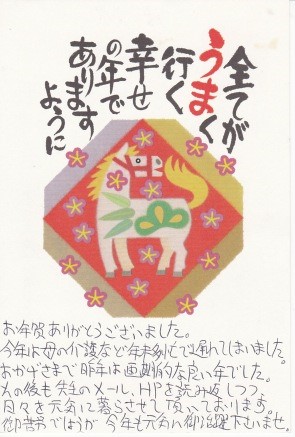 全てが
うまく
行く
幸せ
の年で
あります
ように
お年賀ありがとうございました。
今年は母の介護など年末多忙で遅れてしまいました。
おかげさまで昨年は画期的な良い年でした。
その後も先生のメール、HPを読み返しつつ
日々を元気に暮らさせて頂いております。
御苦労でしょうが今年も元気に御活躍下さいませ。